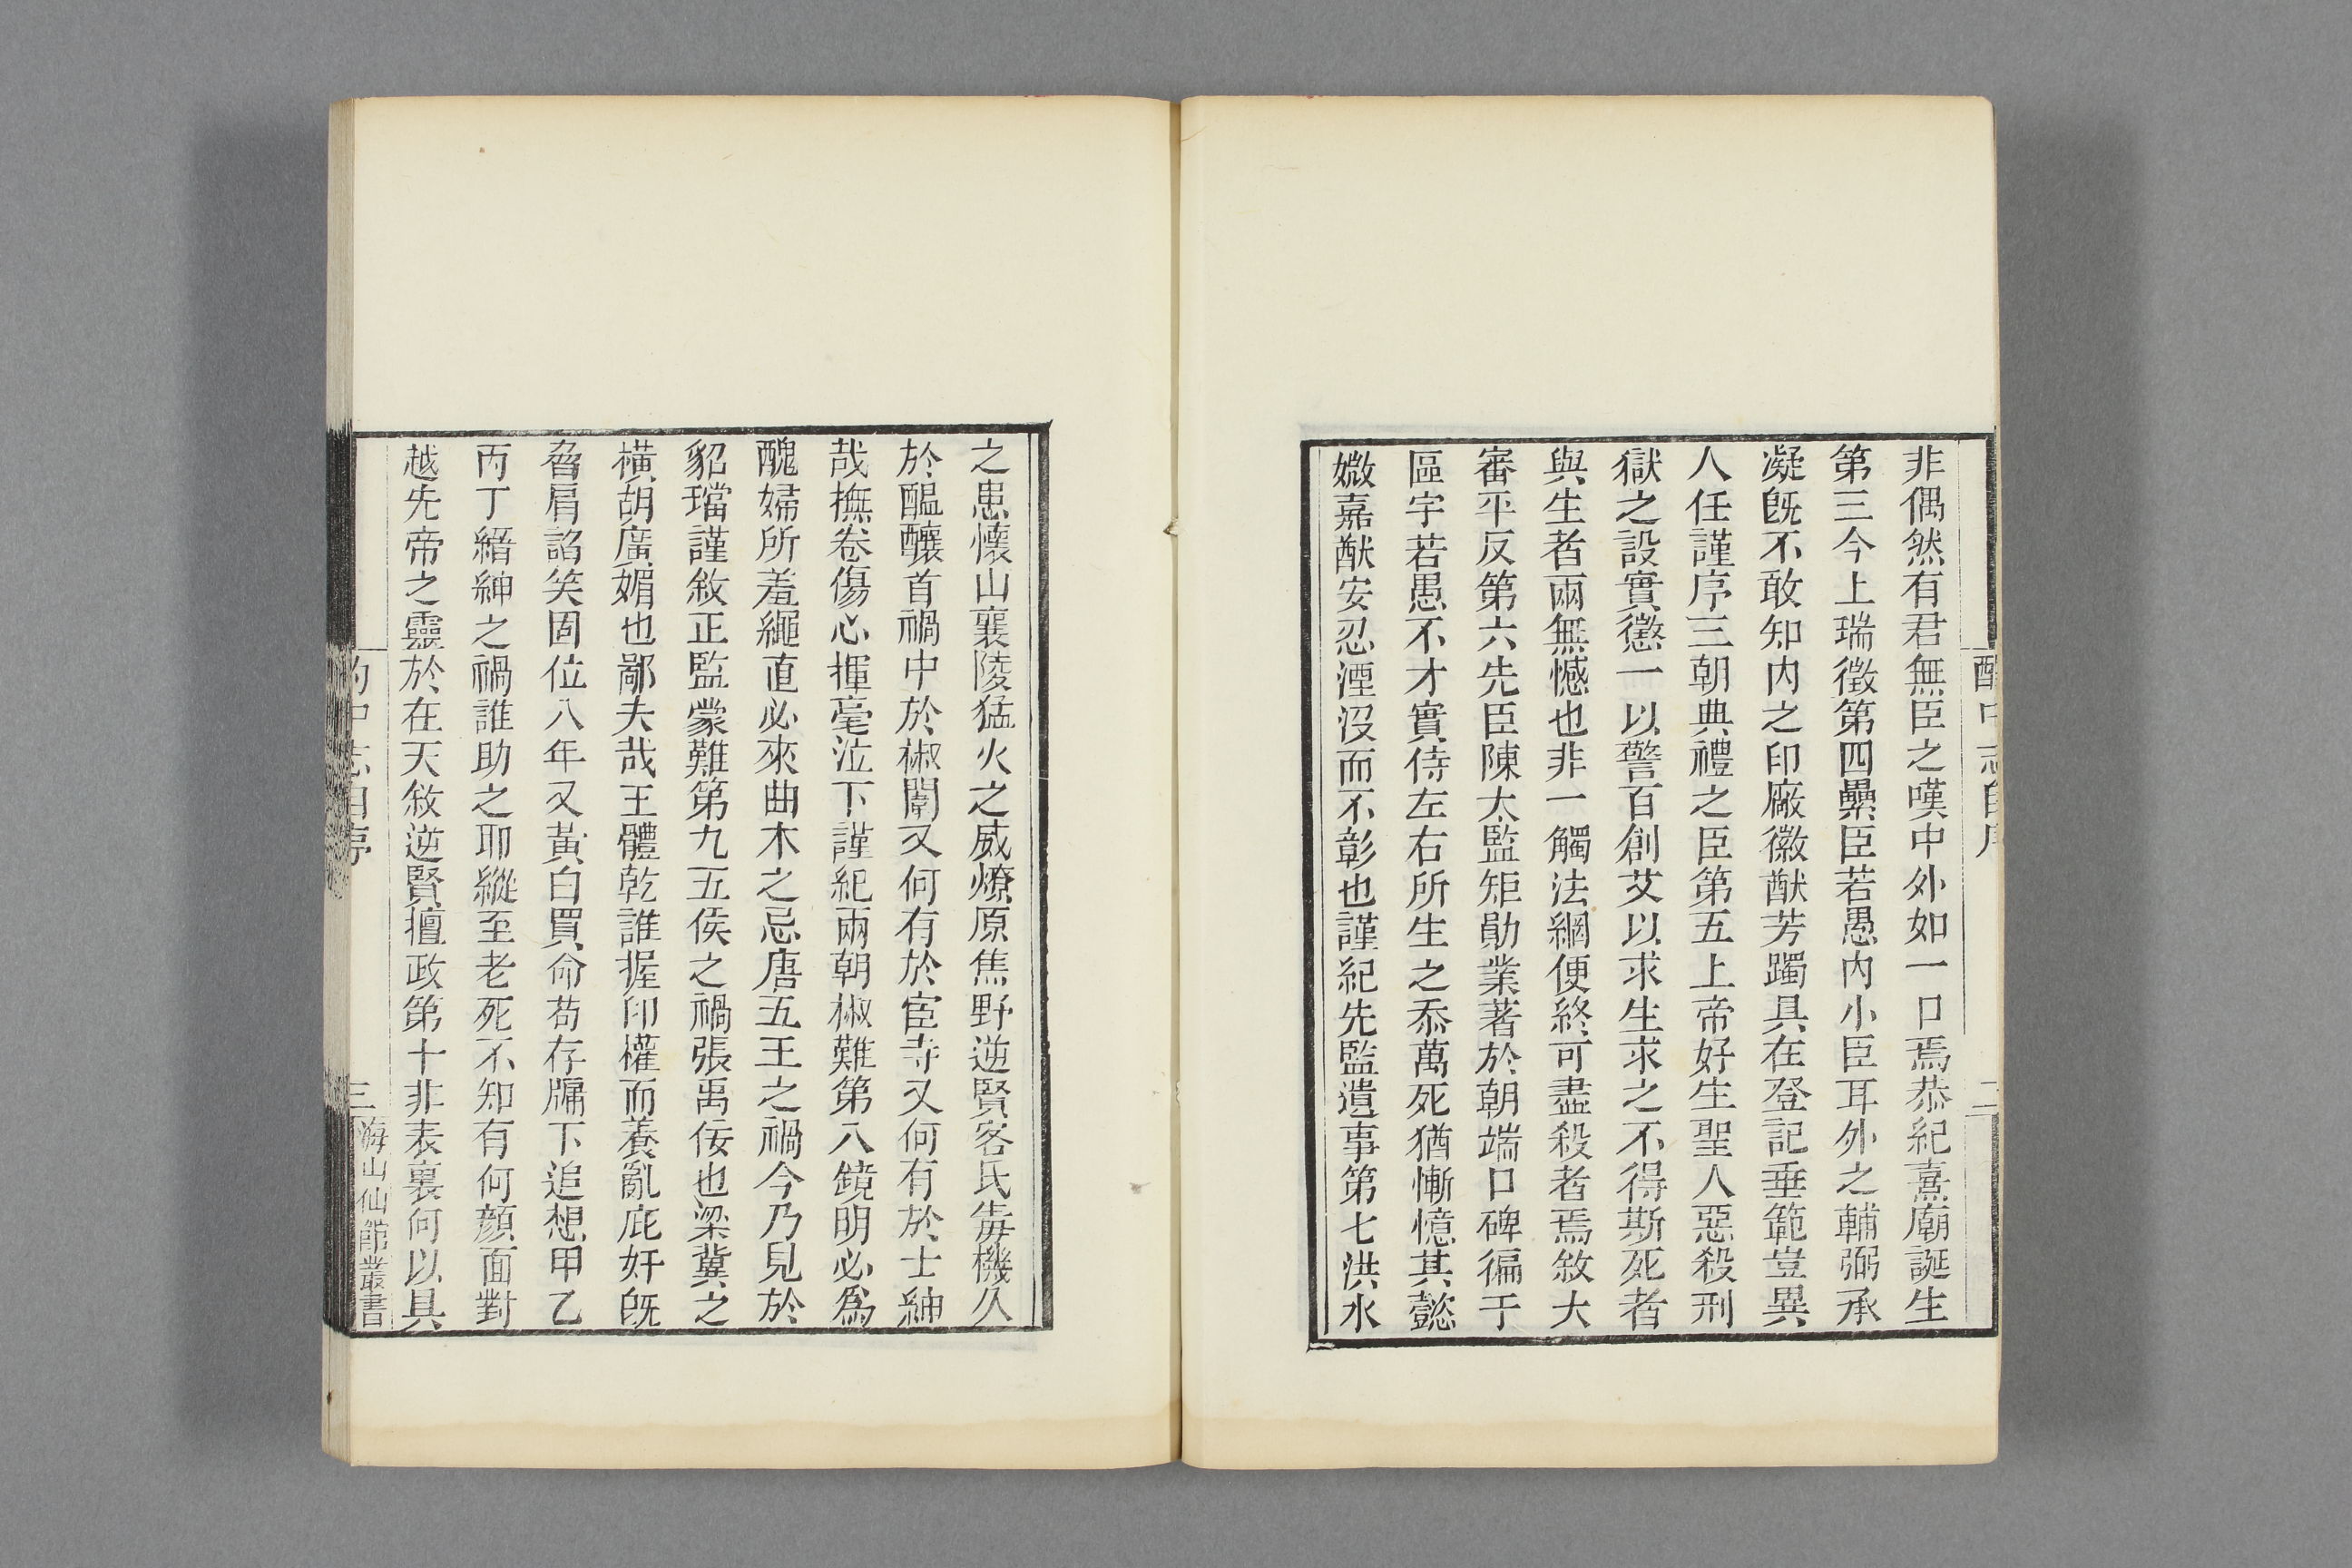 非偶然有君無臣之嘆中外如一口焉恭紀熹廟誕生
第三今上瑞徵第四纍臣若愚內小臣耳外之輔弼承
凝旣不敢知內之印廠徽猷芳躅具在登記垂範豈異
人任謹序三朝典禮之臣第五上帝好生聖人惡殺刑
獄之設實懲一以警百創艾以求生求之不得斯死者
與生者兩無憾也非一觸法網便終可盡殺者焉敘大
審平反第六先臣陳太監矩勛業著於朝端口碑徧于
區宇若愚不才實侍左右所生之忝萬死猶慚憶其懿
媺嘉猷安忍湮沒而不彰也謹紀先監遺事第七洪水
酌中志自序
二
之患懷山襄陵猛火之威燎原焦野逆賢客氏毒機久
於醞釀首禍中於椒闈又何有於宦寺又何有於士紳
哉撫卷傷心揮毫泣下謹紀兩朝椒難第八鏡明必為
醜婦所羞繩直必來曲木之忌唐五王之禍今乃見於
貂璫謹敘正監蒙難第九五侯之禍張禹佞也梁冀之
橫胡廣媚也鄙夫哉王體乾誰握印權而養亂庇奸旣
脅肩諂笑固位八年又黃白買命苟存牖下追想甲乙
丙丁縉紳之禍誰助之耶縱至老死不知有何顏面對
越先帝之靈於在天敘逆賢擅政第十非表裏何以具
酌中志自序
三
海山仙館叢書